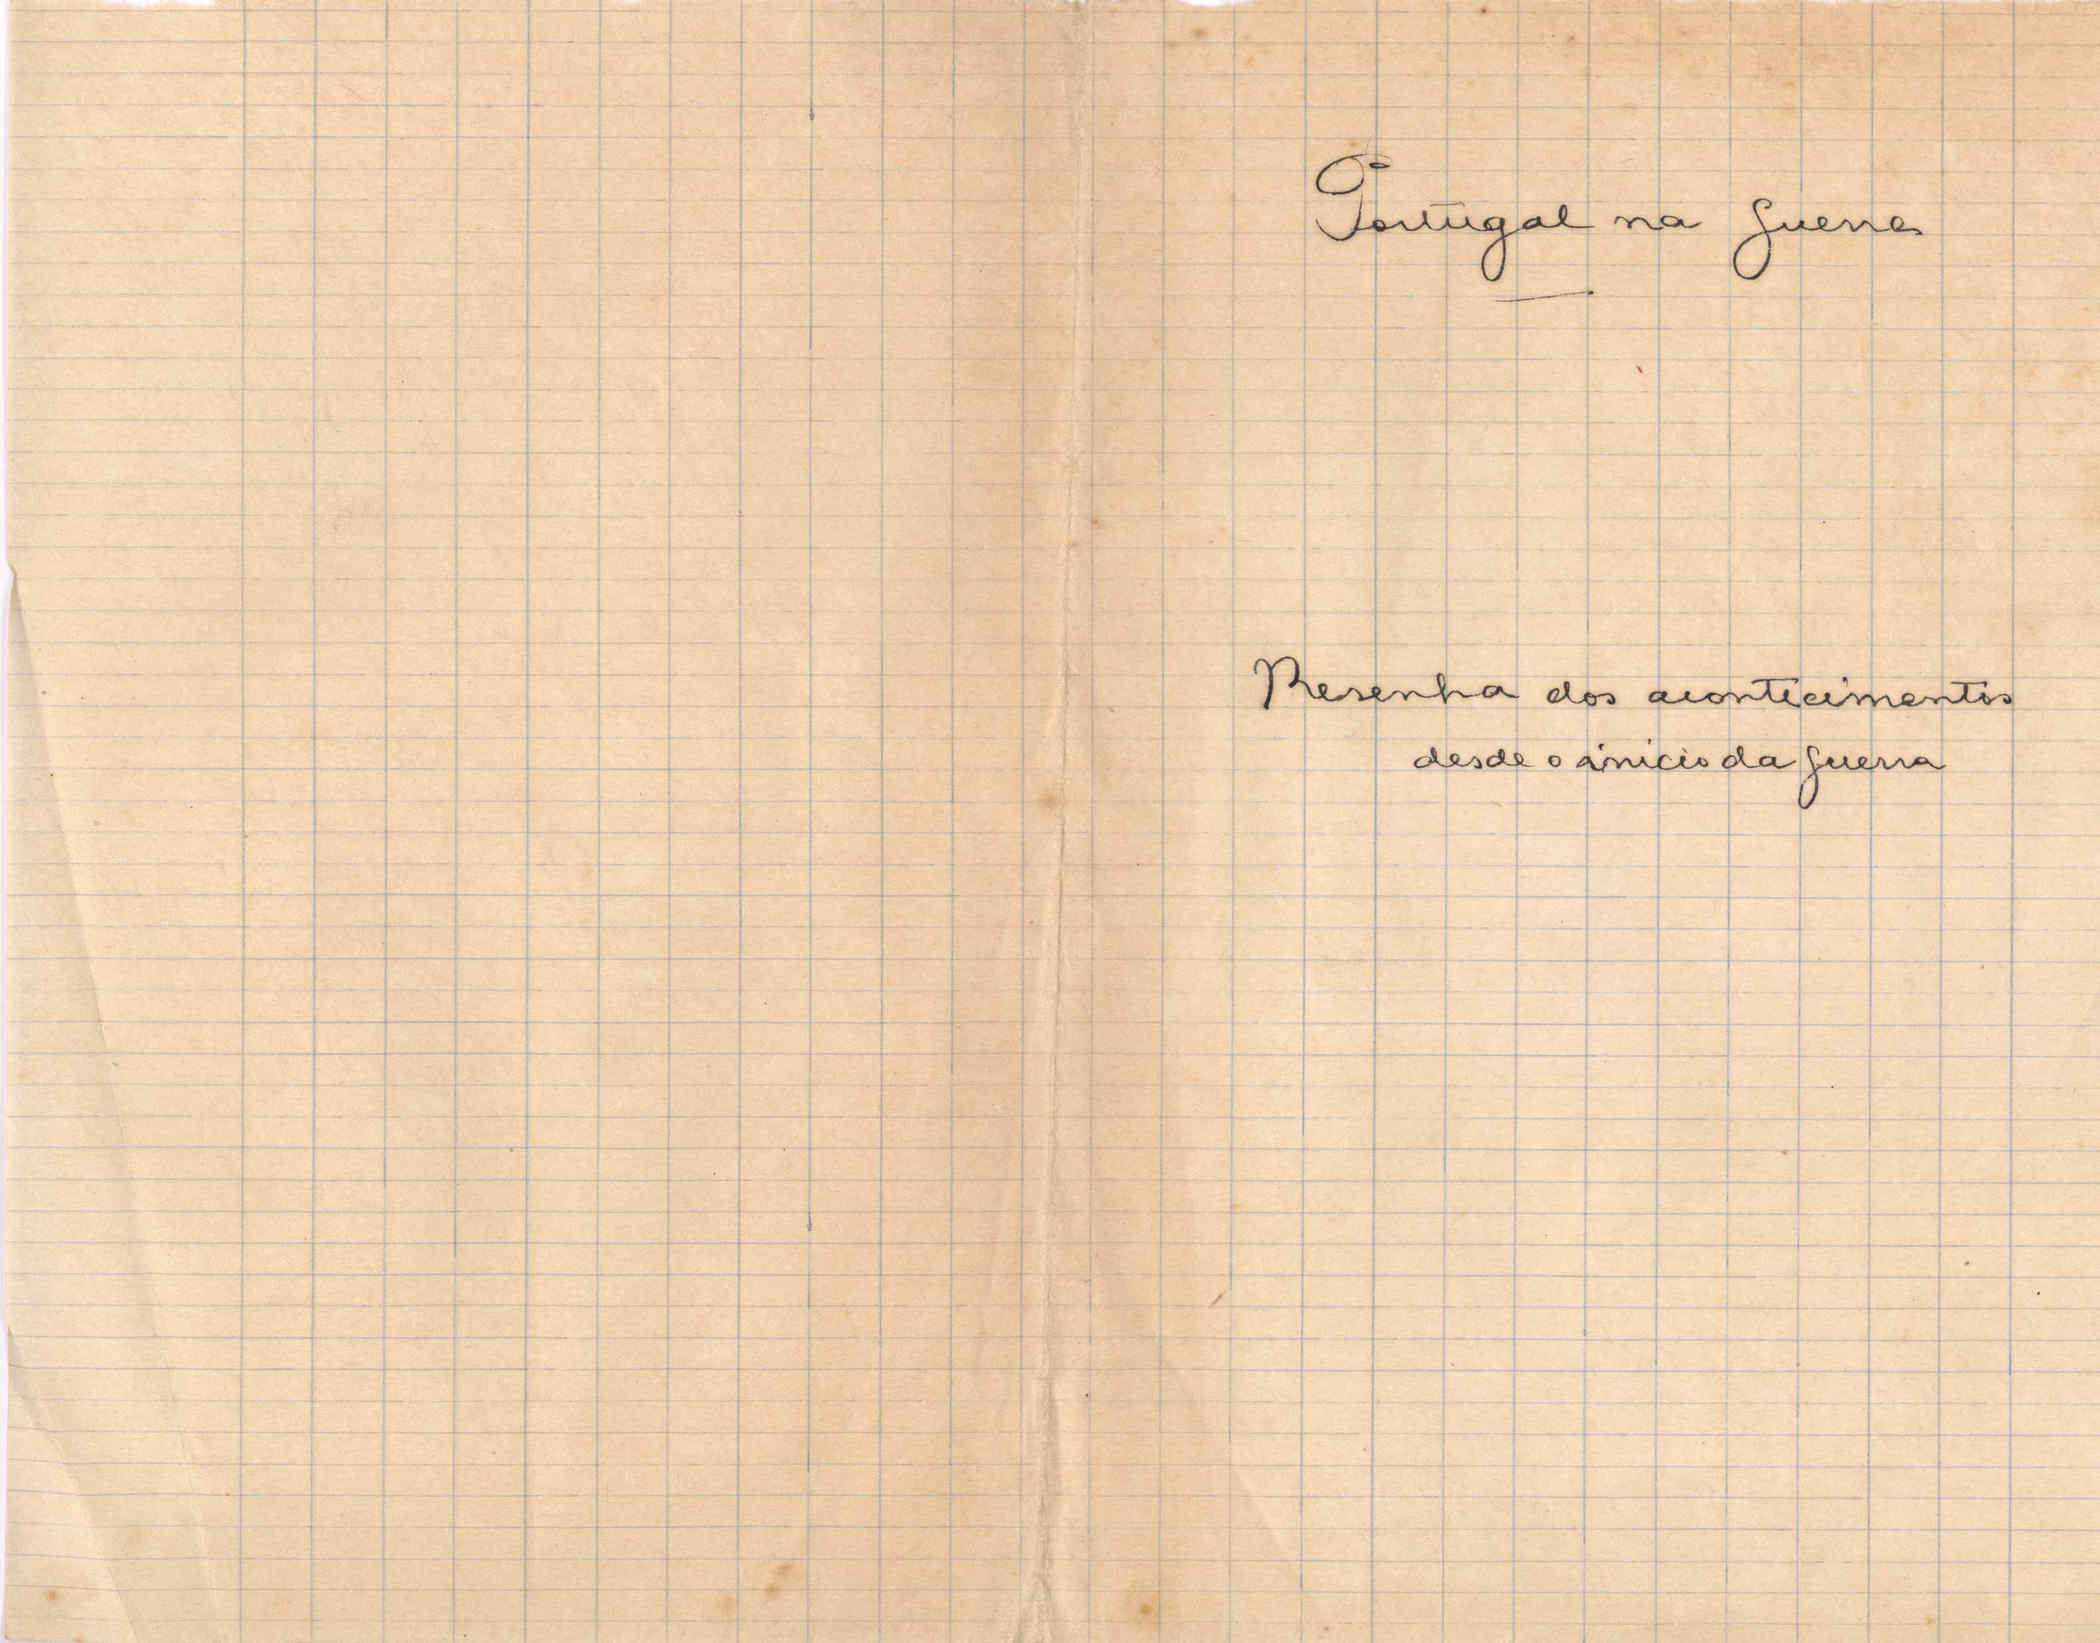 Portugal na guerra
Resenha dos acontecimentos
desde o inicio da guerra